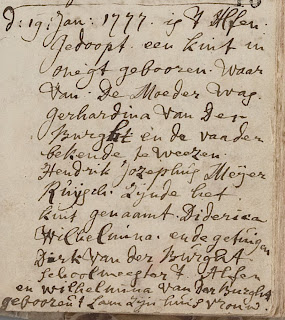 d: 19: Jan: 1777. is t Alfen.
Gedoopt. een kint in
onegt gebooren. Waar
van. De Moeder Was.
Gerhardina Van Der
Burght en de vaader
bekende te weezen.
Hendrik Jozephus Meijer
Ruijsch. Zijnde het
kint genaamt. Diderica
Wilhelmina. en de getuigen
Dirk van der Burght
schoolmeester t Alfen
en wilhelmina van der Burght
gebooren huis vrouw.